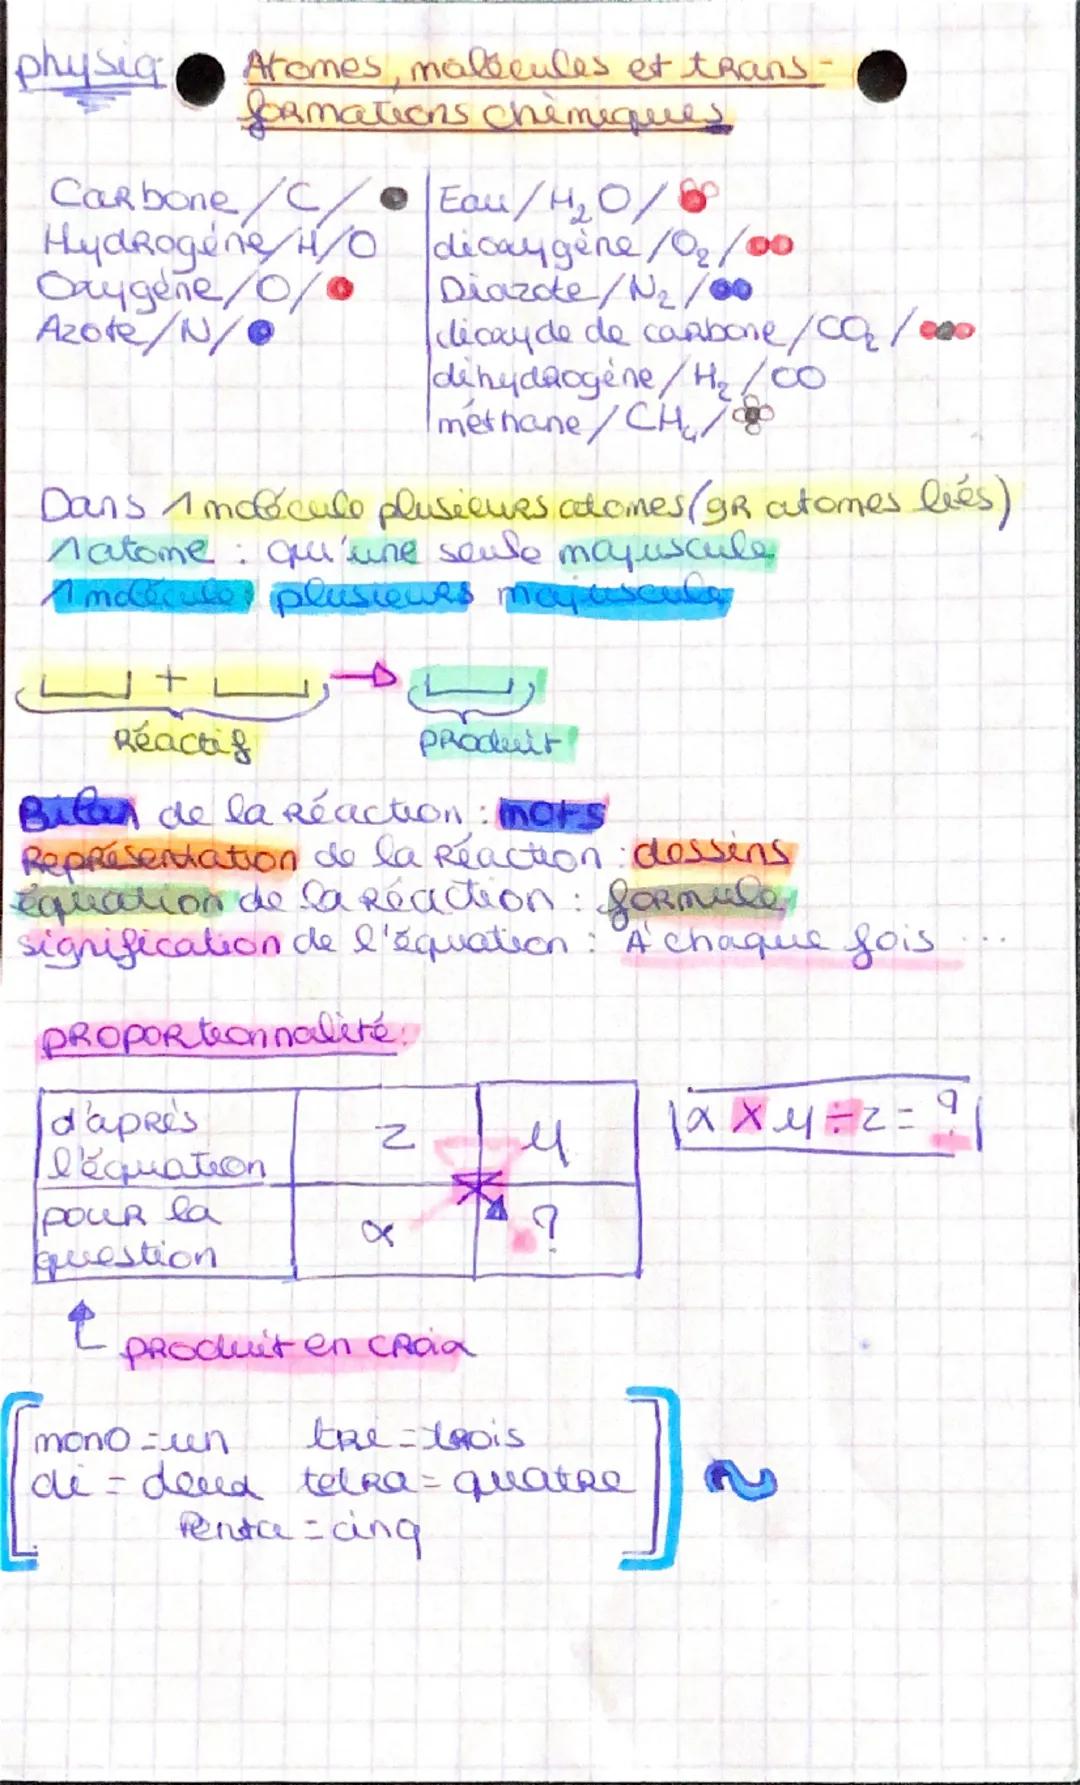 physiq.
Atomes, molécules et trans-
formations chimiques
Carbone / C /
Hydrogène / H /
Oxygène / O /
Azote / N /
Eau / H₂O /
dioxygène / O₂ /
Diazote / N₂ /
dioxyde de carbone / CO₂ /
dihydrogène / H₂ /
méthane / CH₄ /
Dans 1 molécule plusieurs atomes (gR atomes liés)
1 atome : qu'une seule majuscule
1 molécule : plusieurs majuscule
+ →
Réactif
produit
Bilan de la réaction : mots
Représentation de la réaction : dessins
équation de la réaction : formule
signification de l'équation : "A chaque fois ...
proportionnalité :
d'après
l'équation
z
y
pour la
question
x
?
x × y ÷ z = ?
produit en croix
mono = un tri = trois
di = deux tetra = quatre
Penta = cinq